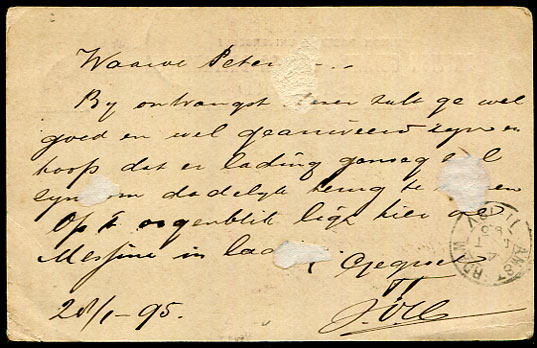 Waarde Peter
By ontvangst dezer zult ge wel
goed en wel gearriveerd zyn en
hoop dat er lading genoeg zal
zyn om dadelyk terug te
Op t oogenblik ligt hier de
Messina in
Gegroet
28/1-95.